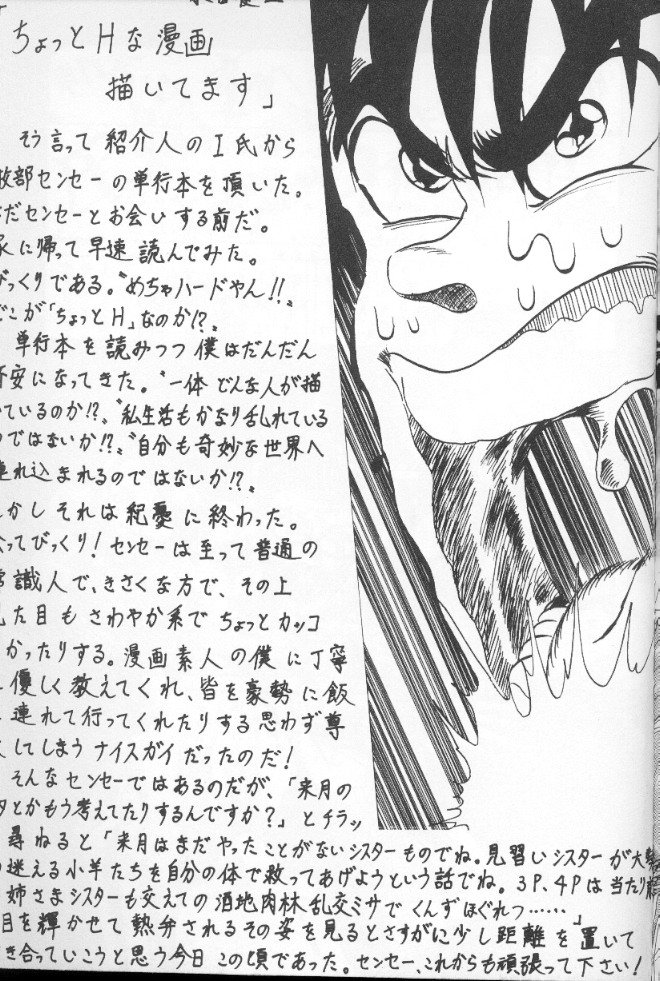 ちょっとHな漫画
描いてます」
そう言って紹介人のI氏から
センセーの単行本を頂いた。
だセンセーとお会いする前だ。
に帰って早速読んでみた。
びっくりである。〝めちゃハードやん!!〟
どこが「ちょっとH」なのか!?〟
単行本を読みつつ僕はだんだん
安になってきた。〝一体どんな人が描
ているのか!?〟〝私生活もかなり乱れている
ではないか!?〟〝自分も奇妙な世界へ
れ込まれるのではないか!?〟
かしそれは紀憂に終わった。
ってびっくり!センセーは至って普通の
識人で、きさくな方で、その上
た目もさわやか系でちょっとカッコ
かったりする。漫画素人の僕に丁寧
優しく教えてくれ、皆を豪勢に飯
連れて行ってくれたりする思わず尊
してしまうナイスガイだったのだ!
そんなセンセーではあるのだが、「来月の
タとかもう考えてたりするんですか?」とチラッ
尋ねると「来月はまだやったことがないシスターものでね。見習いシスターが大勢
迷える小羊たちを自分の体で救ってあげようという話でね。3P、4Pは当たり前
姉さまシスターも交えての酒地肉林乱交ミサでくんずほぐれつ……」
目を輝かせて熱弁されるその姿を見るとさすがに少し距離を置いて
き合っていこうと思う今日この頃であった。センセー、これからも頑張って下さい!